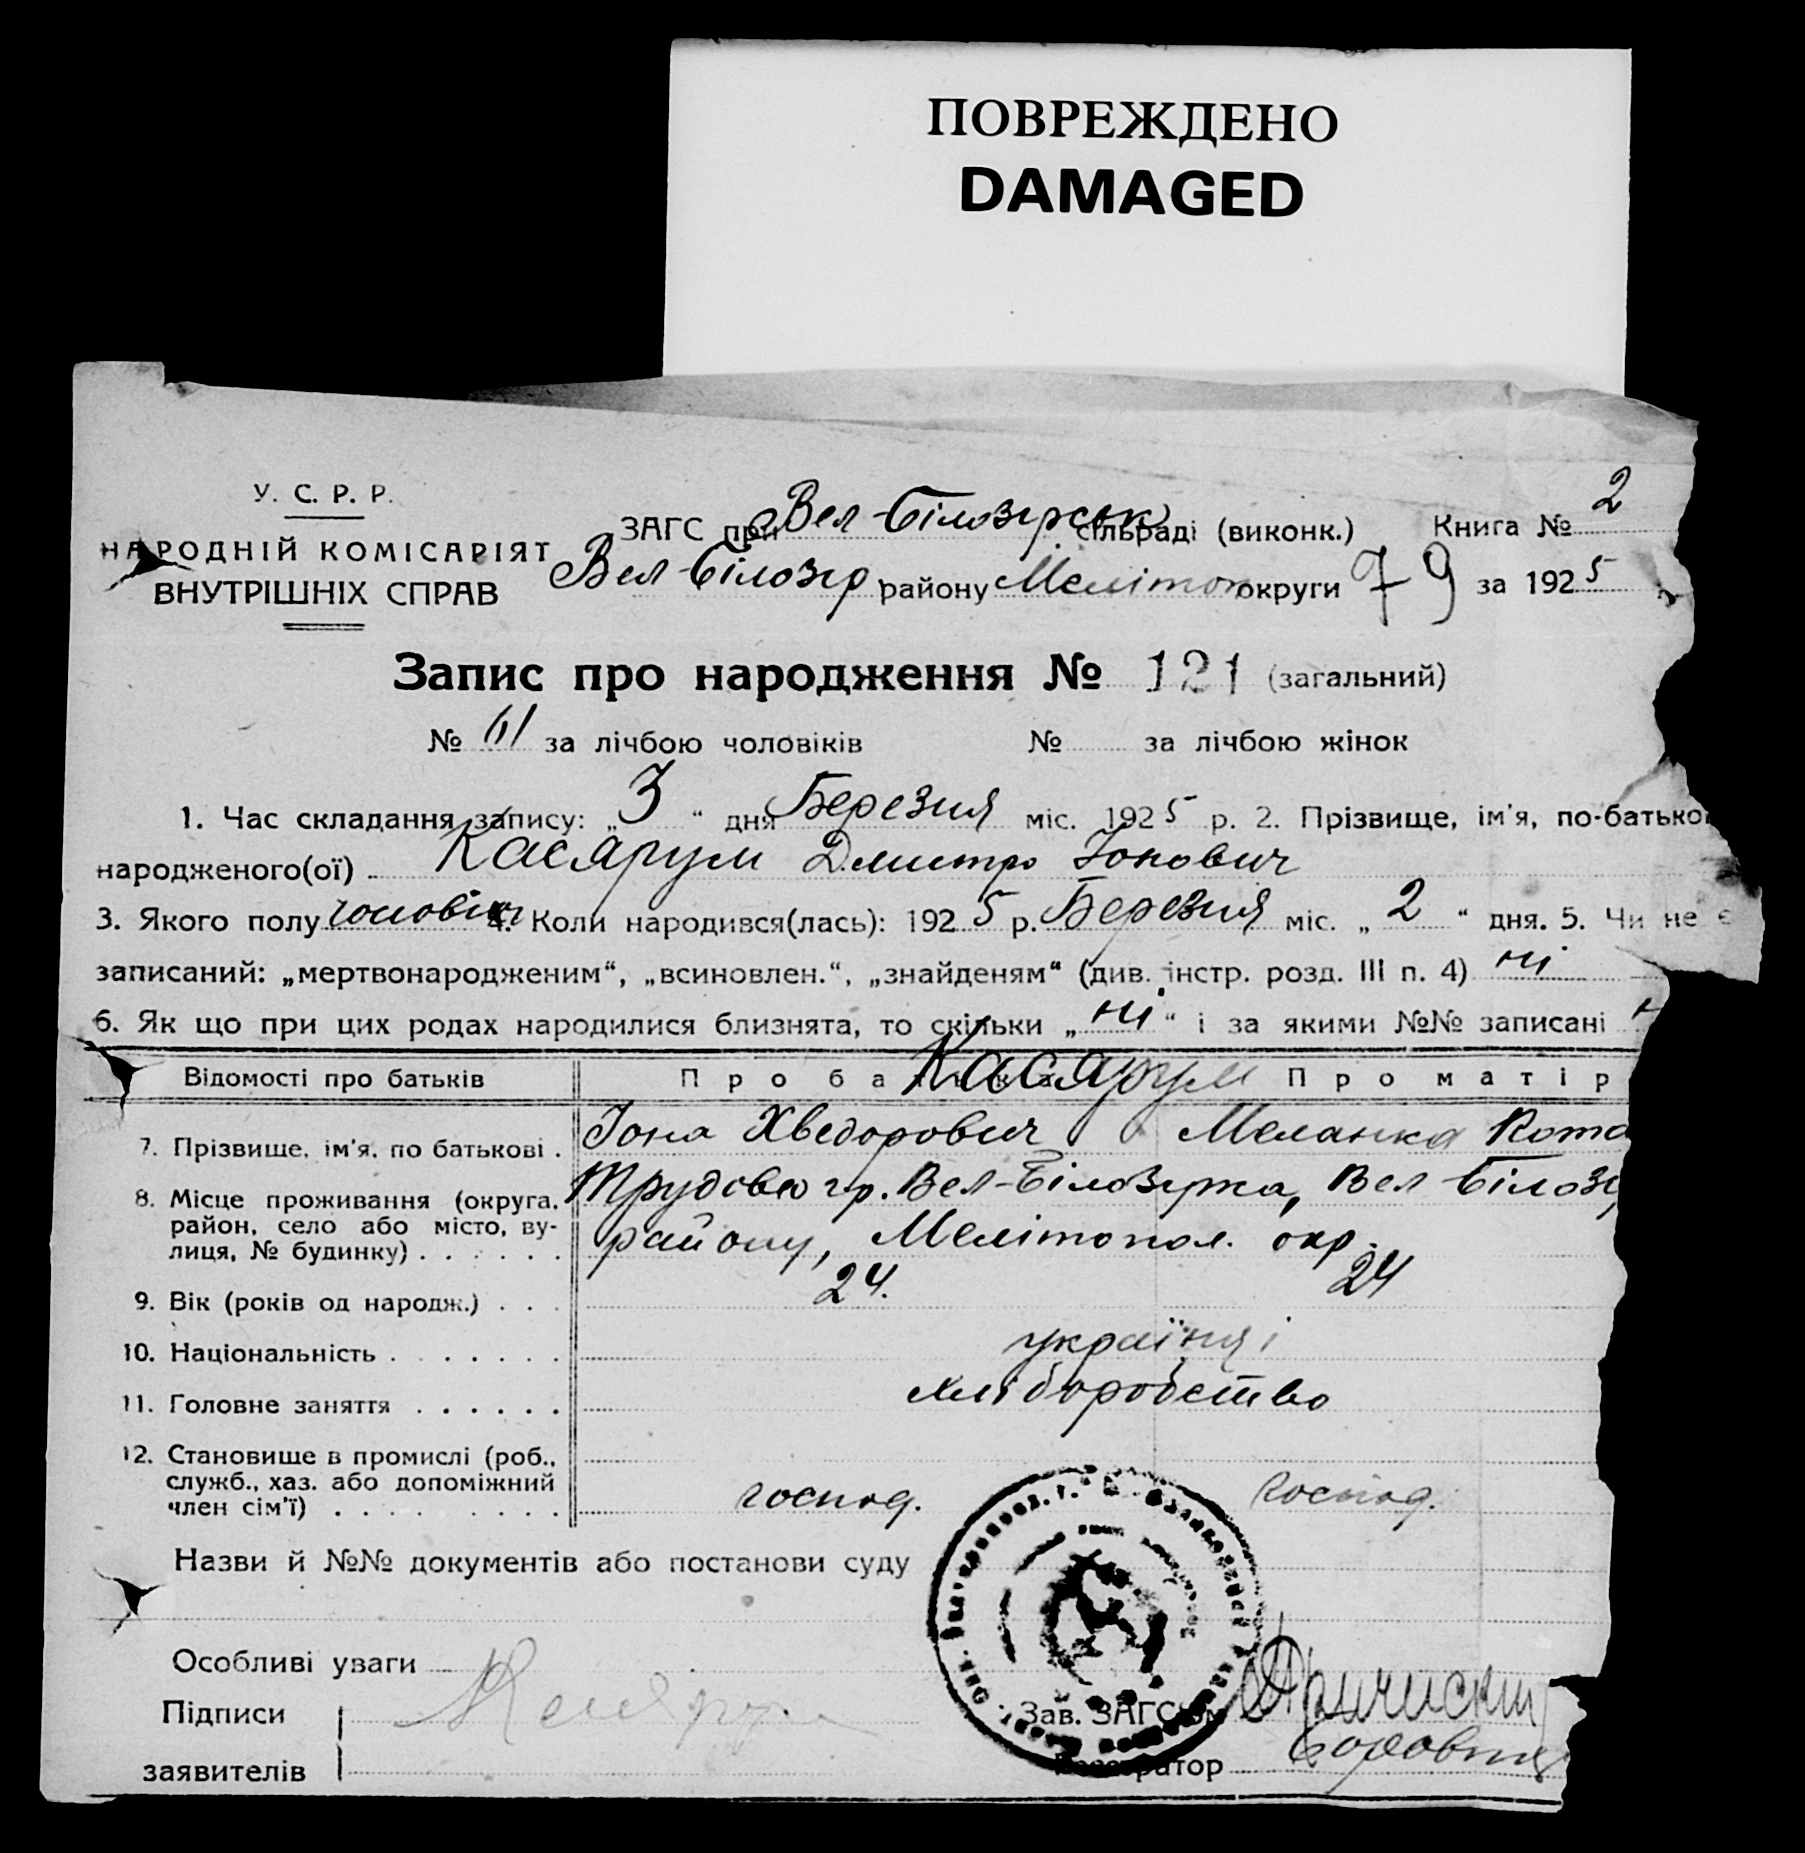 ПОВРЕЖДЕНО
DAMAGED
У. С. Р. Р.
НАРОДНІЙ КОМІСАРІЯТ
ВНУТРІШНІХ СПРАВ
ЗАГС при Вел-Білозірськ сільраді (виконк.) Книга № 2
Вел-Білозір району Мелітоп округи 79 за 1925
Запис про народження № 121 (загальний)
№ 61 за лічбою чоловіків № за лічбою жінок
1. Час складання запису: „3“ дня Березня міс. 1925 р. 2. Прізвище, ім'я, по-батько
народженого(ої) Касярум Дмитро Іонович
3. Якого полу чоловік 4. Коли народився(лась): 1925 р. Березня міс. „2“ дня. 5. Чи не є
записаний: „мертвонародженим“, „всиновлен.“, „знайденям“ (див. інстр. розд. III п. 4) ні
6. Як що при цих родах народилися близнята, то скільки „ні“ і за якими №№ записані н
Відомості про батьків Про батька Касярум Про матір
7. Прізвище, ім'я, по батькові . Іона Хведорович Меланка
8. Місце проживання (округа, район, село або місто, ву-
лиця, № будинку) . . . . . . Трудова гр. Вел-Білозірка, Вел Білозі
району, Мелітопол. окр.
9. Вік (років од народж.) . . . 24. 24
10. Національність . . . . . . . українці
11. Головне заняття . . . . . . хліборобство
12. Становище в промислі (роб.,
служб., хаз. або допоміжний
член сім'ї) . . . . . . . . . господ. господ.
Назви й №№ документів або постанови суду
Особливі уваги
Підписи Касярум Зав. ЗАГС'ом
заявителів Реєстратор